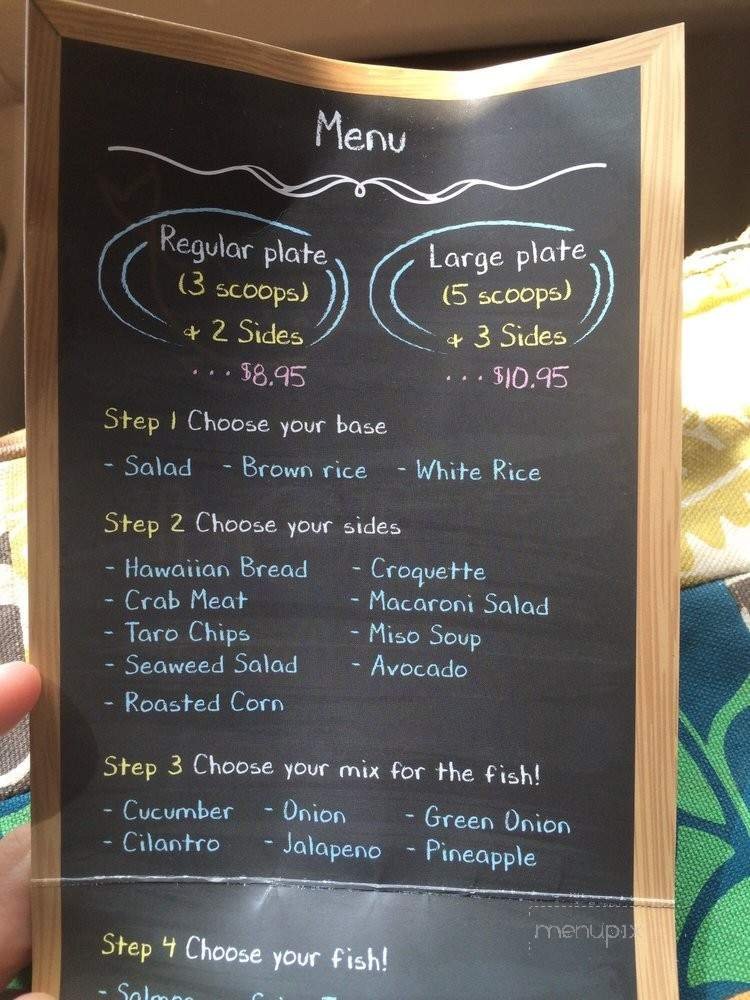 Menu
Regular plate
(3 scoops)
& 2 Sides
... $8.95
Large plate
(5 scoops)
& 3 Sides
... $10.95
Step 1 Choose your base
- Salad - Brown rice - White Rice
Step 2 Choose your sides
- Hawaiian Bread - Croquette
- Crab Meat - Macaroni Salad
- Taro Chips - Miso Soup
- Seaweed Salad - Avocado
- Roasted Corn
Step 3 Choose your mix for the fish!
- Cucumber - Onion - Green Onion
- Cilantro - Jalapeno - Pineapple
menupix
Step 4 Choose your fish!
- Salmon